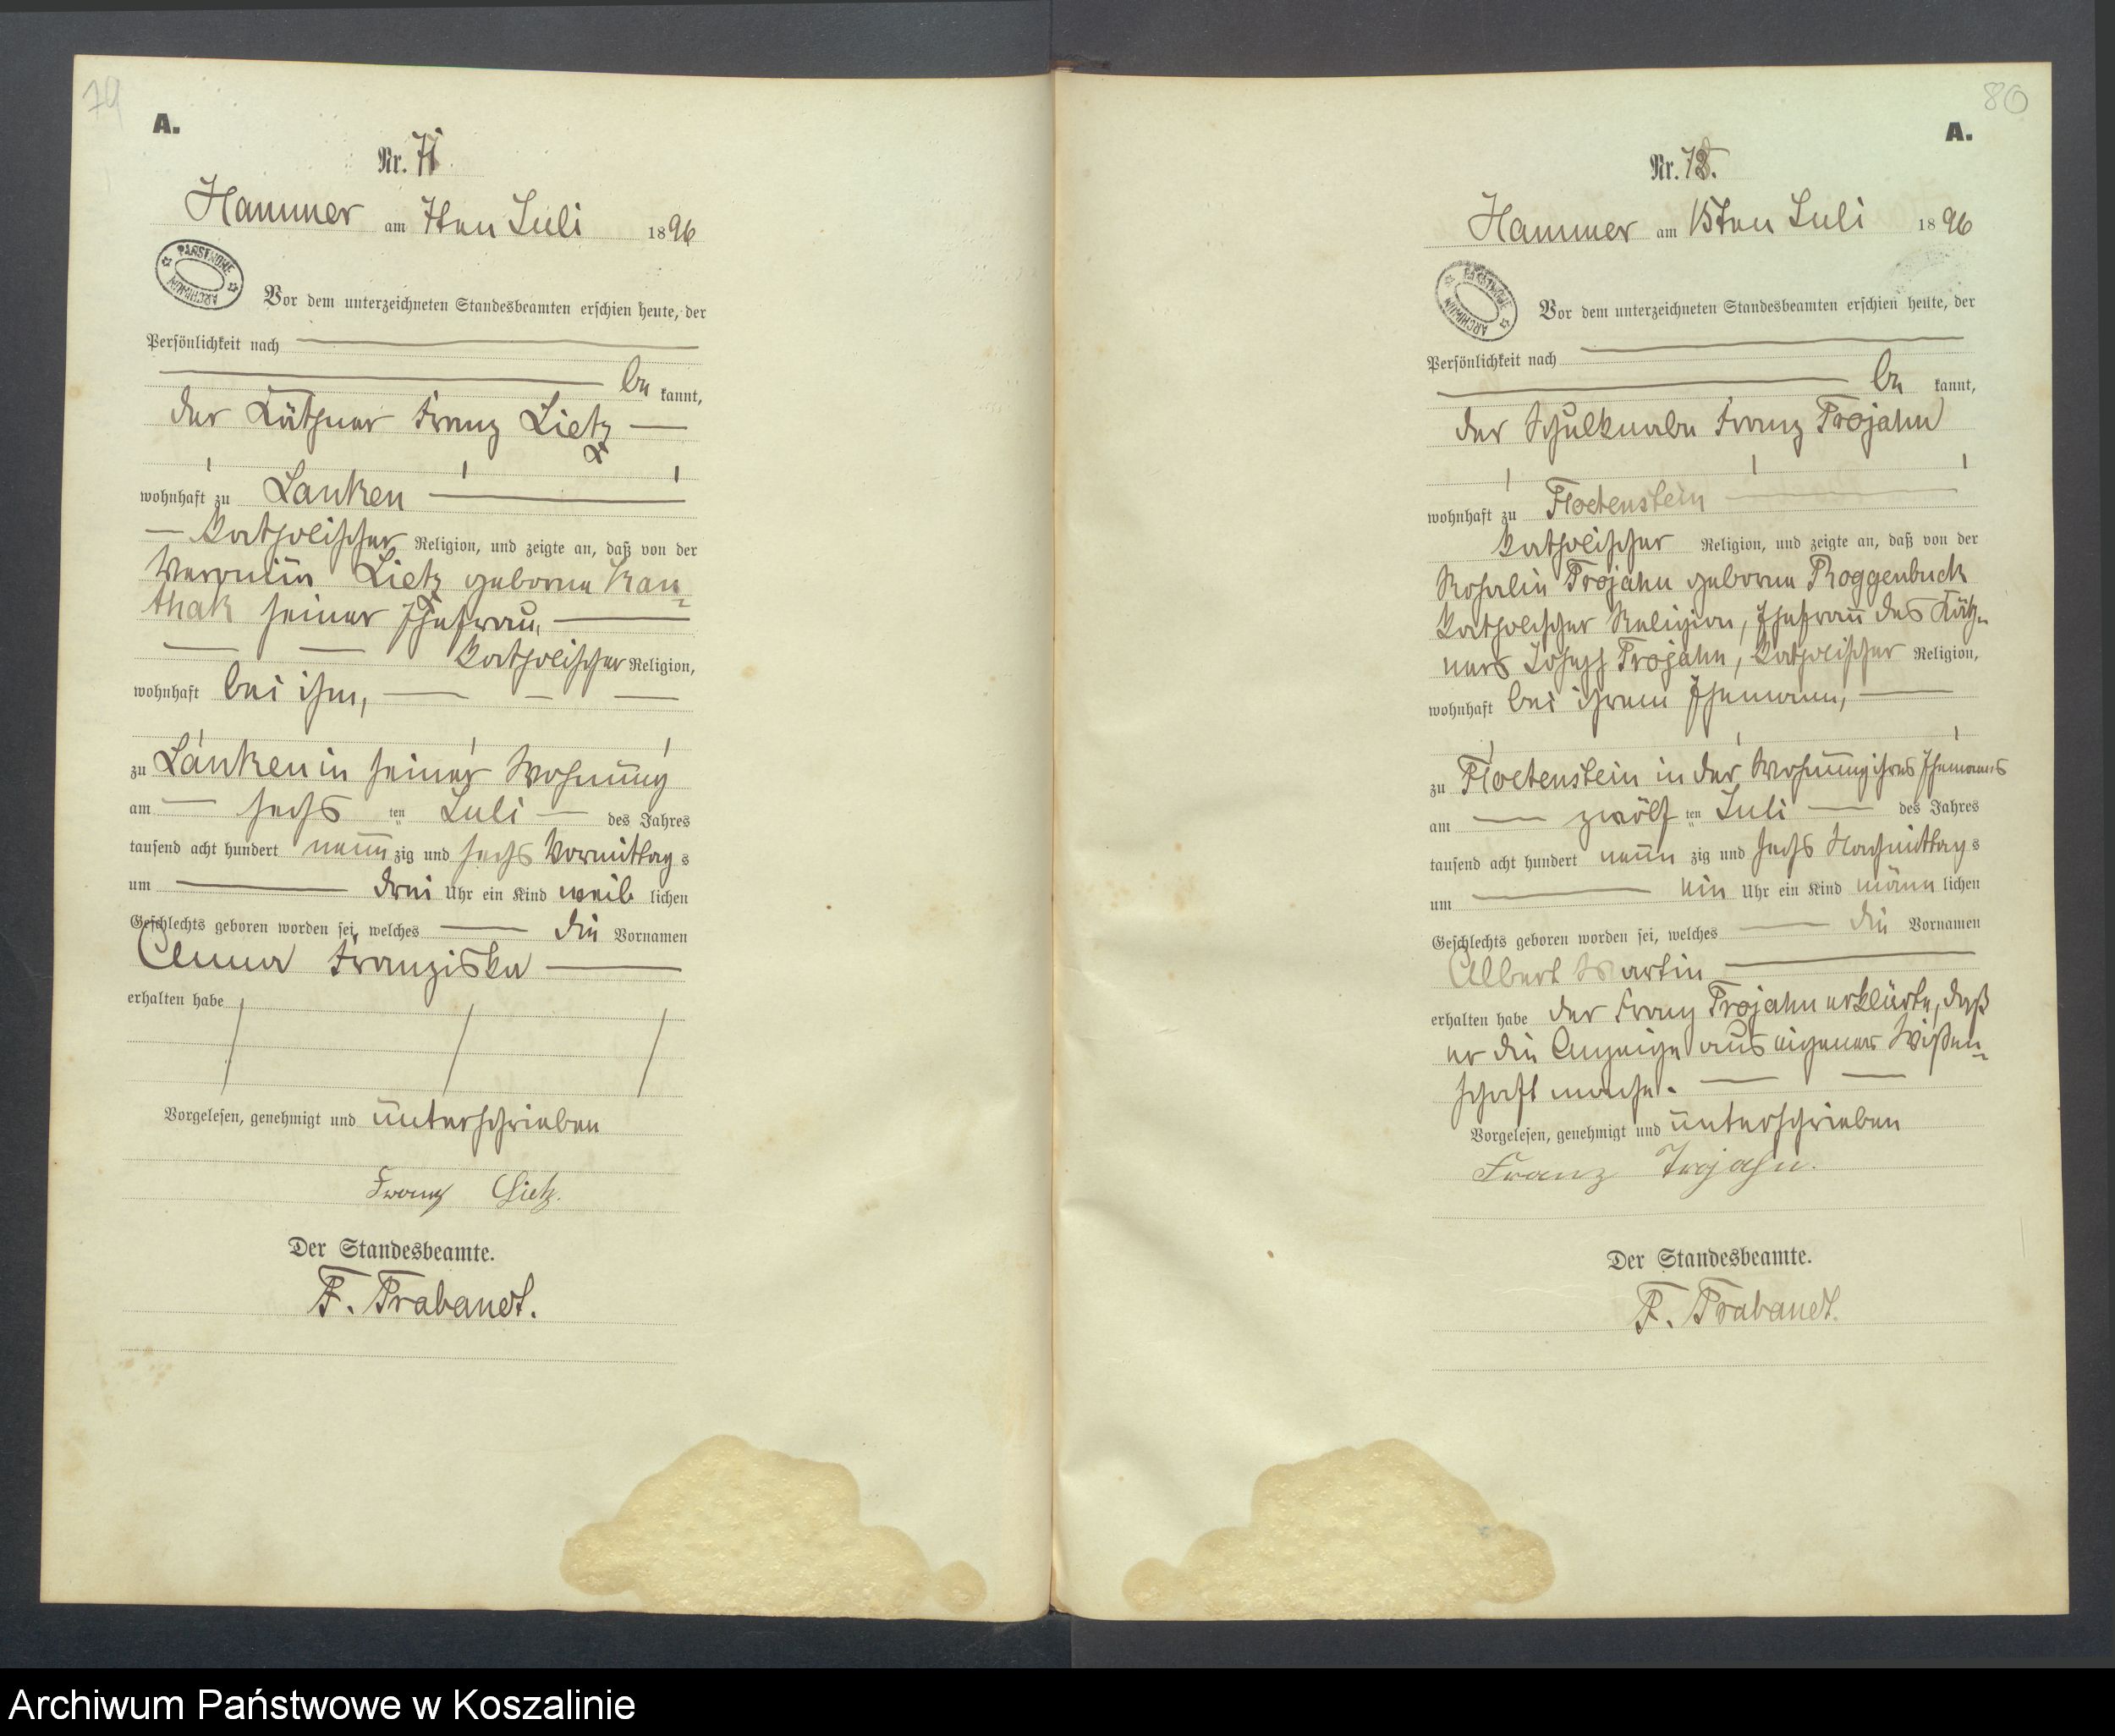 79
A.
Nr. 71.
Hammer am 7ten Juli 1896
PAŃSTWOWE
ARCHIWUM
Vor dem unterzeichneten Standesbeamten erschien heute, der
Persönlichkeit nach
be kannt,
der Käthner Franz Lietz
wohnhaft zu Lanken
katholischer Religion, und zeigte an, daß von der
Veronica Lietz geborne Kan-
thak seiner Ehefrau,
katholischer Religion,
wohnhaft bei ihm,
zu Lanken in seiner Wohnung
am sechs ten Juli des Jahres
tausend acht hundert neun zig und sechs Vormittag s
um drei Uhr ein Kind weib lichen
Geschlechts geboren worden sei, welches die Vornamen
Anna Franziska
erhalten habe
Vorgelesen, genehmigt und unterschrieben
Franz Lietz.
Der Standesbeamte.
F. Trabandt.
80
A.
Nr. 72.
Hammer am 15ten Juli 1896
PAŃSTWOWE
ARCHIWUM
Vor dem unterzeichneten Standesbeamten erschien heute, der
Persönlichkeit nach
be kannt,
der Schulknabe Franz Trojahn
wohnhaft zu Floetenstein
katholischer Religion, und zeigte an, daß von der
Rosalie Trojahn geborne Roggenbuck
katholischer Religion, Ehefrau des Käth-
ners Joseph Trojahn, katholischer Religion,
wohnhaft bei ihrem Ehemann,
zu Floetenstein in der Wohnung ihres Ehemanns
am zwölf ten Juli des Jahres
tausend acht hundert neun zig und sechs Nachmittag s
um ein Uhr ein Kind männ lichen
Geschlechts geboren worden sei, welches die Vornamen
Albert Martin
erhalten habe der Franz Trojahn erklärte, daß
er die Anzeige aus eigener Wißen-
schaft mache.
Vorgelesen, genehmigt und unterschrieben
Franz Trojahn.
Der Standesbeamte.
F. Trabandt.
Archiwum Państwowe w Koszalinie